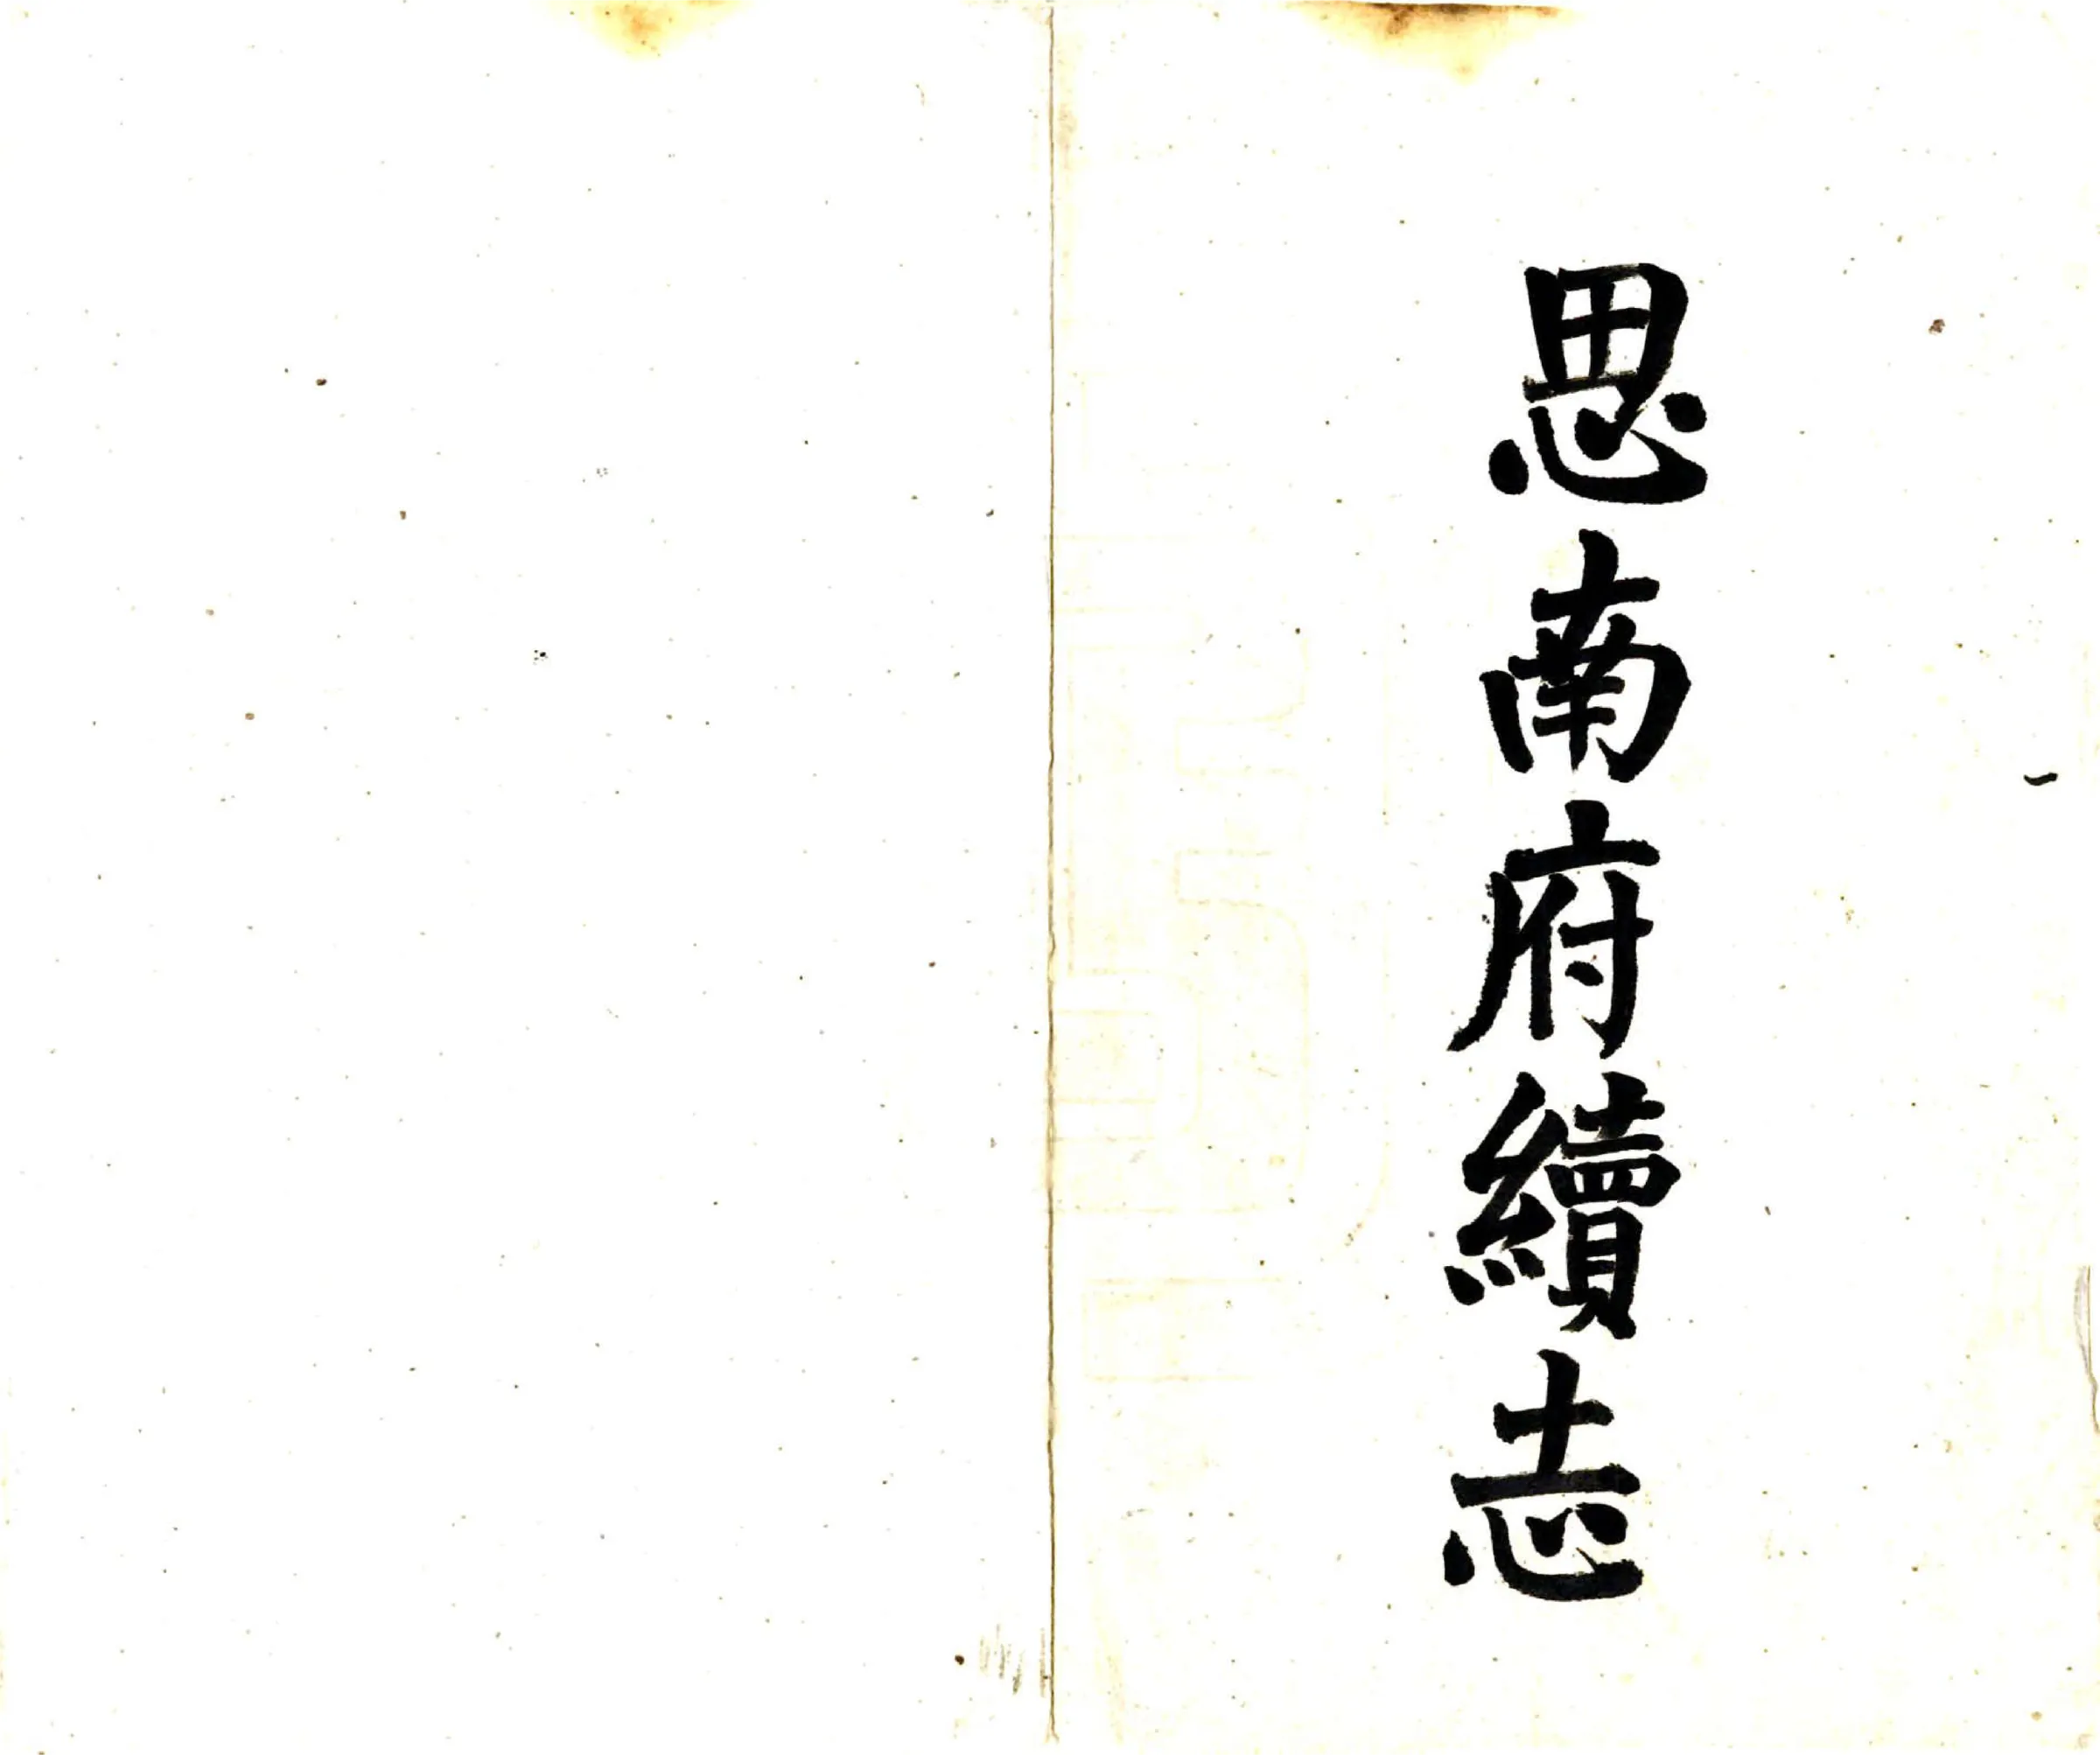 思南府續志